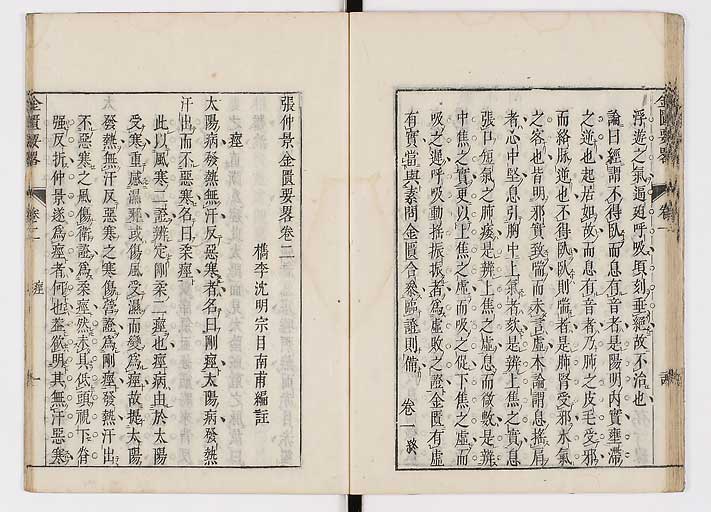 浮遊之氣逼迫呼吸頃刻垂絕故不治也
論曰經謂不得臥而息有音者是陽明內實壅滯
之逆也起居如故而息有音者乃肺之皮毛受邪
而絡脉逆也不得臥臥則喘者是肺腎受邪水氣
之客也皆明邪實致喘而未言虛本論謂息搖肩
者心中堅息引胸中上氣者欬是辨上焦之實息
張口短氣之肺痿是辨上焦之虛息而微數是辨
中焦之實更以上焦之虛而吸之促下焦之虛而
吸之遲呼吸動搖振振者爲虛敗之證金匱有虛
有實當與素問金匱合參臨證則備
卷一終
金匱要畧
卷一
張仲景金匱要畧卷二
檇李沈明宗目南甫編註
痙
太陽病發熱無汗反惡寒者名曰剛痙太陽病發熱
汗出而不惡寒名曰柔痙
此以風寒二證辨定剛柔二痙也痙病由於太陽
受寒重感濕邪或傷風受濕而變爲痙故揭太陽
發熱無汗反惡寒之寒傷營證爲剛痙發熱汗出
不惡寒之風傷衛證爲柔痙然未具低頭視下脊
强反折仲景遂爲痙者何也蓋欲明其無汗惡寒
金匱要畧
卷二
痙
一